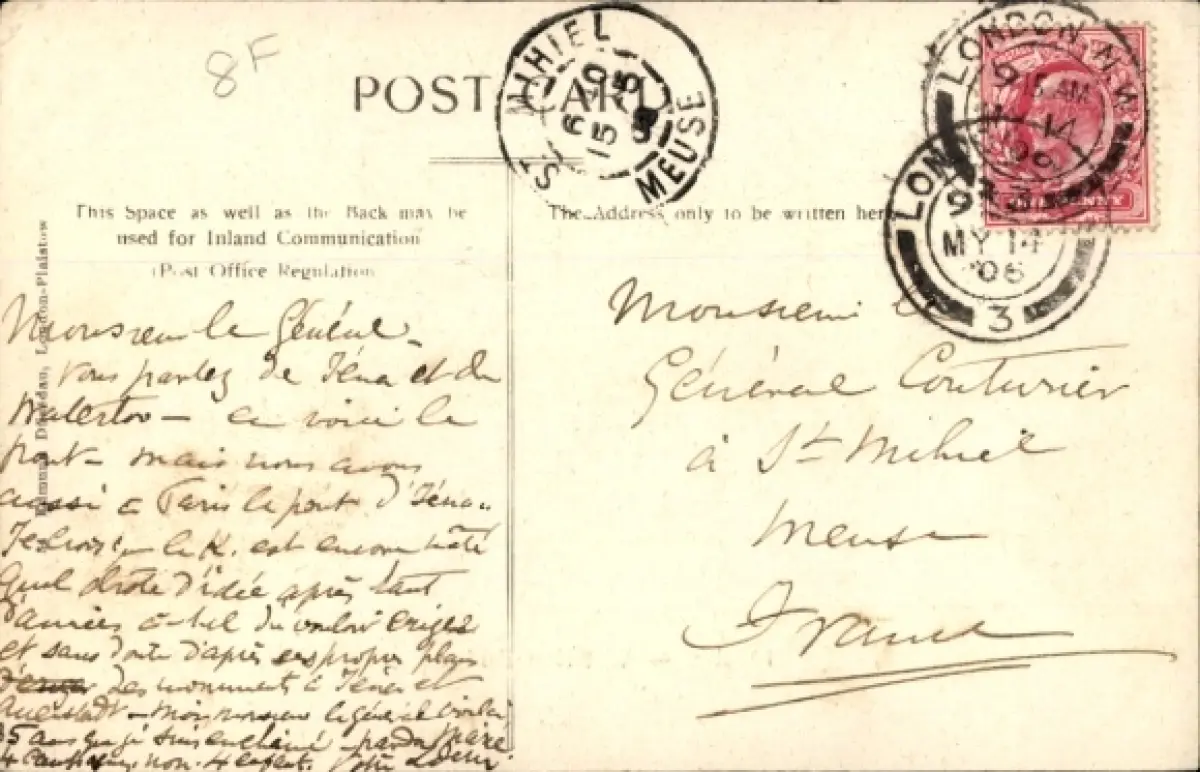 8F
POST CARD
ST MIHIEL
MEUSE
LONDON N.W
9 15 AM
14
06
LON
MY 14
06
3
PENNY
This Space as well as the Back may be
used for Inland Communication
(Post Office Regulation)
The Address only to be written here
London-Plaistow
Monsieur le Général
Vous parlez de Iéna et du
Waterloo — en voici le
pont — mais nous avons
aussi à Paris le pont d'Iéna
le K. est encore
quel drôle d'idée après tant
d'années du vouloir ériger
et sans doute d'après ses propres plans
des monuments à Iéna et
Auerstadt — mon
35 ans
4
Monsieur le
Général Couturier
à St Mihiel
Meuse
France